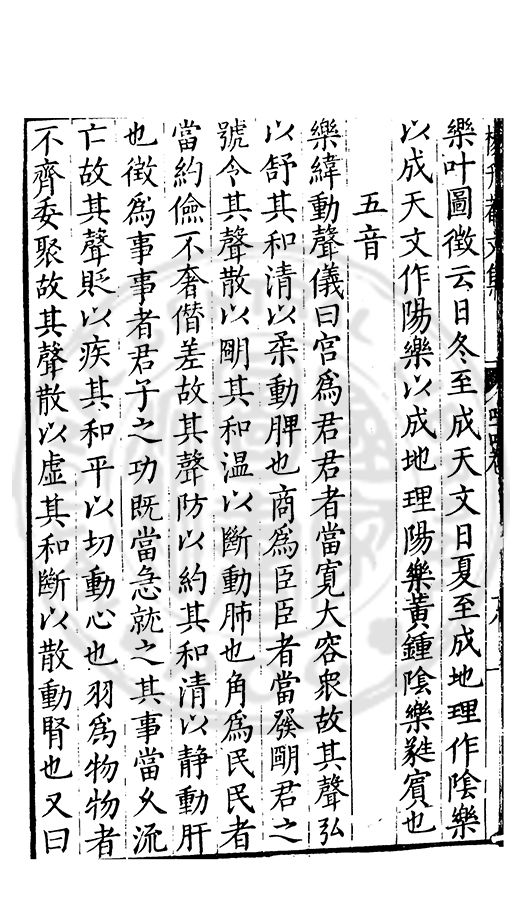 樂叶圖徵云日冬至成天文日夏至成地理作隂樂
以成天文作陽樂以成地理陽樂黃鍾隂樂蕤賔也
五音
樂緯動聲儀曰宫爲君君者當寛大容衆故其聲弘
以舒其和清以柔動脾也商爲臣臣者當發朙君之
號令其聲散以朙其和温以斷動肺也角爲民民者
當約儉不奢僣差故其聲防以約其和清以静動肝
也徴爲事事者君子之功既當急就之其事當久流
亡故其聲貶以疾其和平以切動心也羽爲物物者
不齊委聚故其聲散以虛其和斷以散動腎也又曰